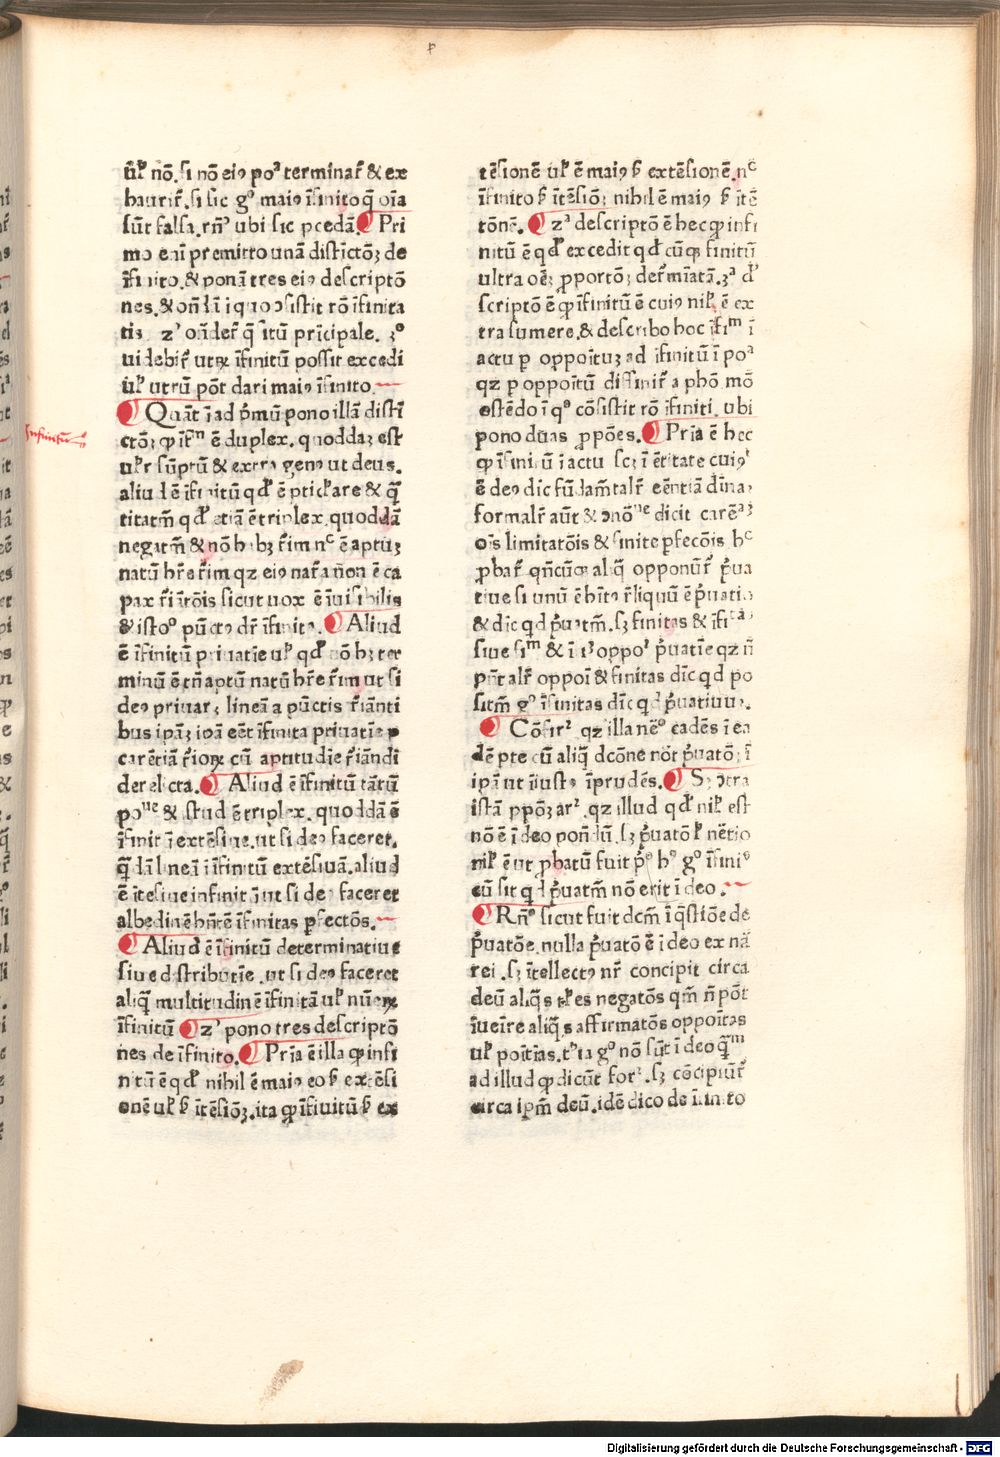 ul̄r nō. si nō eiꝰ poᵃ terminar̄ & ex
haurir̄. si sic gᵒ maiꝰ īfinito q̄ oīa
sūt falsa. rn̄ᵒ ubi sic ꝓcedā. Pri
mo enī premitto unā distīctōꝫ de
īfinito. & ponā tres eiꝰ descriptō
nes. & on̄dā ī quo ɔsistit rō īfinita
tis zᵒ on̄der̄ q̄situ prīcipale. ꝫᵒ
uidebit̄ utꝝ īfinitū possit excedi
ul̄r utrū pōt dari maiꝰ īfinito.
Quāt̄ ī ad p̄mū pono illā distī
ctōꝫ ꝙ īfiᵐ ē duplex. quoddaꝫ est
ul̄r sūptū & extra genꝰ ut deus.
aliud ē īfinitū qd̄ ē ꝑticl̄are & quā
titatm̄ qd̄ etiā ē triplex. quoddā
negatm̄ & nō habꝫ r̄im nᶜ ē aptuꝫ
natū hr̄e r̄im qz eiꝰ nar̄a nō ē ca
pax r̄iātōis sicut uox ē īuisibilis
& istoᵒ pūctꝰ dr̄ īfinitꝰ. Aliud
ē īfinitū priuatīe ul̄ qd̄ nō hꝫ ter
minū ē tn̄ aptū natū hr̄e r̄im ut si
deꝰ priuarꝫ lineā a pūctis r̄iānti
bus ipāꝫ ipā eēt īfinita priuatīe ꝑ
carētiā r̄ionꝝ cū aptitudīe r̄iāndi
derelicta. Aliud ē īfinitū tātū
poⁿᵉ & istud ē triplex. quoddā ē
īfinit̄ ī extēsiue. ut si deꝰ faceret
q̄ dā lineā īfinitū extēsiuā. aliud
ē ītēsiue infinitū ut si deꝰ faceret
albedinē hn̄tē īfinitas ꝑfectōs.
Aliud ē īfinitū determinatiue
siue distributīe. ut si deꝰ faceret
aliq̄ multitudinē īfinitā ul̄ nūerꝝ
īfinitū zᵒ pono tres descriptō
nes de īfinito. Pria ē illa ꝙ infi
nitū ē qd̄ nihil ē maiꝰ eo s̄ extēsi
onē ul̄ s̄ ītēsiōꝫ. ita ꝙ īfinitū s̄ ex
tēsionē ul̄ ē maiꝰ s̄ extēsionē. nᶜ
īfinito s̄ ītēsiōꝫ nihil ē maiꝰ s̄ ītē
tōnē. zᵃ descriptō ē hec ꝙ infi
nitū ē qd̄ excedit qd̄ cūqꝫ finitū
ultra oēꝫ ꝓportōꝫ der̄mīatā. ꝫᵃ d̄
scriptō ē ꝙ īfinitū ē cuiꝰ nil̄ ē ex
tra sumere. & describo hoc īfiᵐ ī
actu ꝑ oppoītuꝫ ad īfinitū ī poᵃ
qz ꝑ oppoītū diffinir̄ a phō mō
ostēdo ī qᵒ cōsistit rō īfiniti. ubi
pono duas ꝓpōes. Pria ē hec
ꝙ īfinitū ī actu scꝫ ī ētitate cuiꝰ
ē deꝰ dīc fūdam̄talr̄ eēntiā dīnaꝫ
formalr̄ aūt & ɔnōⁿᵉ dicit carēᵃꝫ
oīs limitatōis & finite ꝑfecōis hᶜ
ꝓbar̄ qn̄cūqꝫ aliq̄ opponūr̄ p̄ua
tiue si unū ē hītꝰ r̄liquū ē p̄uatio
& dīc qd p̄uatm̄. sꝫ finitas & īfiᵗᵃˢ
siue fiᵐ & īfiᵐ oppoʳ p̄uatīe qz n̄
pn̄talr̄ oppoī & finitas dīc qd po
sitm̄ gᵒ īfinitas dīc qd p̄uatiuū.
Cōfirʳ. qz illa nēᵒ eadēs ī ea
dē ꝑte cū aliq̄ dcōne nōt p̄uatōꝫ ī
ipā ut īiustꝰ īprudēs. Sꝫ ɔtra
istā ꝓpōꝫ arʳ. qz illud qd̄ nil̄ est
nō ē ī deo pon̄dū. sꝫ p̄uatō ł nētio
nil̄ ē ut ꝓbatū fuit p̄ᵉ hᵒ gᵒ īfiniᵒ
cū sit qd p̄uatm̄ nō erit ī deo.
Rn̄ᵒ sicut fuit dcm̄ ī q̄stiōe de
p̄uatōe. nulla p̄uatō ē ī deo ex nā
rei. sꝫ ītellectꝰ nr̄ concipit circa
deū aliq̄s tl̄es negatōs qm̄ n̄ pōt
īueīre aliq̄s affirmatōs oppoītas
ul̄ poītias. tᵃlia gᵒ nō sūt ī deo q̄ᵐ
ad illud ꝙ dicūt forʳ. sꝫ cōcipiūt̄
circa ipm̄ deū. idē dico de īfinito
Infinitū